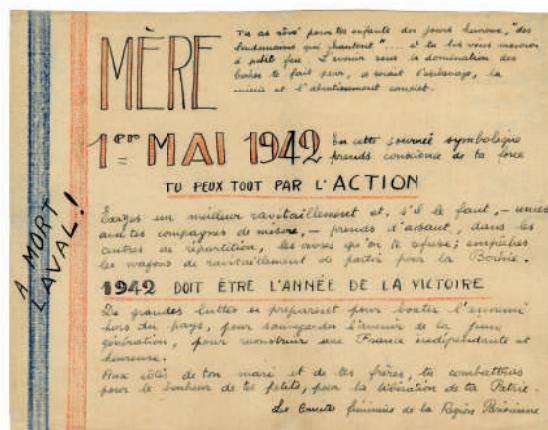 MÈRE
Tu as rêvé pour tes enfants des jours heureux, "des
lendemains qui chantent".... et tu les vois mourir
à petit feu. L'avenir sous la domination des
boches te fait peur, ce serait l'esclavage, la
misère et l'abrutissement complet.
1er MAI 1942
En cette journée symbolique
prends conscience de ta force
TU PEUX TOUT PAR L'ACTION
Exiges un meilleur ravitaillement et, s'il le faut, - unies
avec tes compagnes de misère, - prends d'assaut, dans les
centres de répartition, les vivres qu'on te refuse; empêches
les wagons de ravitaillement de partir pour la Bochie.
1942 DOIT ÊTRE L'ANNÉE DE LA VICTOIRE
De grandes luttes se préparent pour bouter l'ennemi
hors du pays, pour sauvegarder l'avenir de la jeune
génération, pour reconstruire une France indépendante et
heureuse.
Aux côtés de ton mari et de tes frères, tu combattras
pour le bonheur de tes petits, pour la libération de ta Patrie.
Les Comités féminins de la Région Parisienne
A MORT
LAVAL!